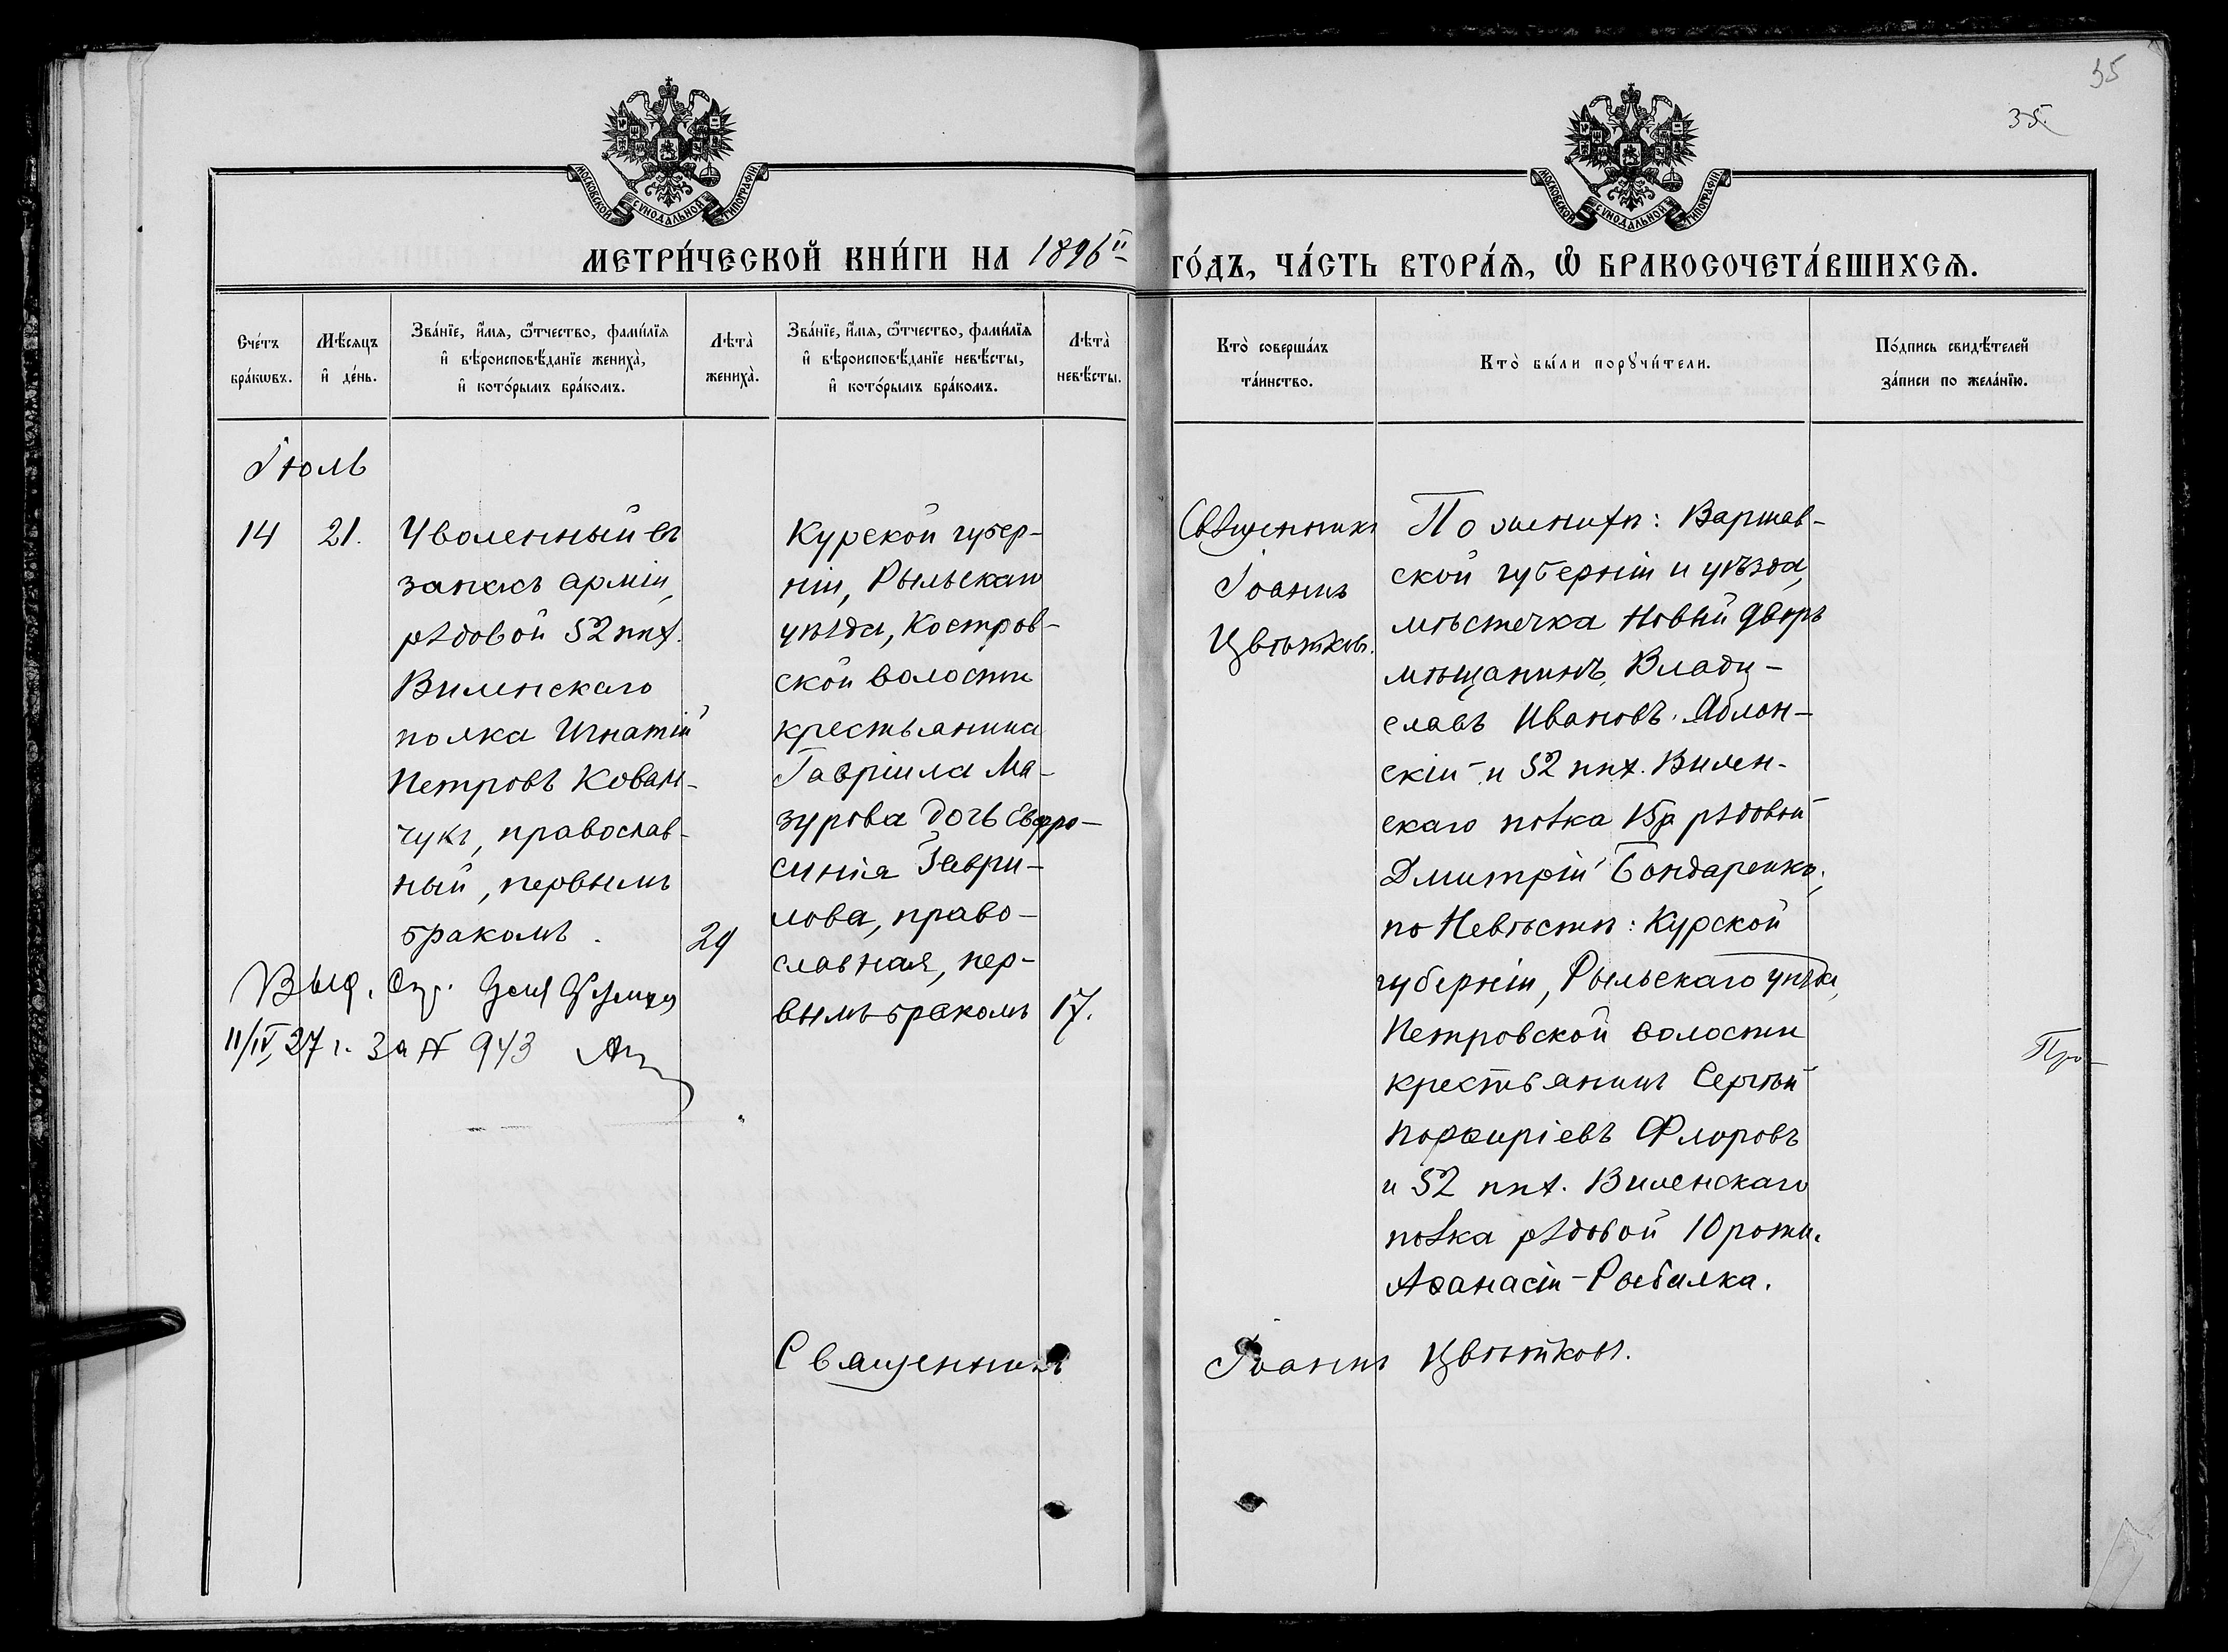 35
35.
МОСКОВСКОЙ СѴНОДАЛЬНОЙ ТИПОГРАФІИ
МОСКОВСКОЙ СѴНОДАЛЬНОЙ ТИПОГРАФІИ
МЕТРИ́ЧЕСКОЙ КНИ́ГИ НА 1896й ГО́ДЪ, ЧА́СТЬ ВТОРА́Я, Ѡ БРАКОСОЧЕТА́ВШИХСЯ.
Сче́тъ
бра́кωвъ.
Мѣ́сяцъ
и҆ де́нь.
Зва́нїе, и҆́мя, ѻ҆́тчество, фами́лїя
и҆ вѣроисповѣ́данїе жениха̀,
и҆ кото́рымъ бра́комъ.
Лѣта̀
жениха̀.
Зва́нїе, и҆́мя, ѻ҆́тчество, фами́лїя
и҆ вѣроисповѣ́данїе невѣ́сты,
и҆ кото́рымъ бра́комъ.
Лѣта̀
невѣ́сты.
Кто̀ соверша́лъ
та́инство.
Кто̀ бы́ли порꙋчи́тели.
По́дпись свидѣ́телей
за́писи по жела́нїю.
Іюль
14
21.
Уволенный въ
запасъ арміи,
рядовой 52 пѣх.
Виленскаго
полка Игнатій
Петровъ Коваль-
чукъ, православ-
ный, первымъ
бракомъ.
29
Выд.
11/IV 27 г. За № 943
Курской губер-
ніи, Рыльскаго
уѣзда, Костров-
ской волости
крестьянина
Гавріила Ма-
зурова дочь Евфро-
синія Гаври-
лова, право-
славная, пер-
вымъ бракомъ
17.
Священникъ
Іоаннъ
Цвѣтковъ.
По женихѣ: Варшав-
ской губерніи и уѣзда,
мѣстечка Новый Дворъ
мѣщанинъ, Влади-
славъ Ивановъ Яблон-
скій и 52 пѣх. Вилен-
скаго полка 15 р рядовой
Дмитрій Бондаренко;
по Невѣстѣ: Курской
губерніи, Рыльскаго уѣзда,
Петровской волости
крестьянинъ Сергѣй
Порфиріевъ Флоровъ
и 52 пѣх. Виленскаго
полка рядовой 10 роты.
Афанасій Рыбалка.
Про-
Священникъ Іоаннъ Цвѣтковъ.